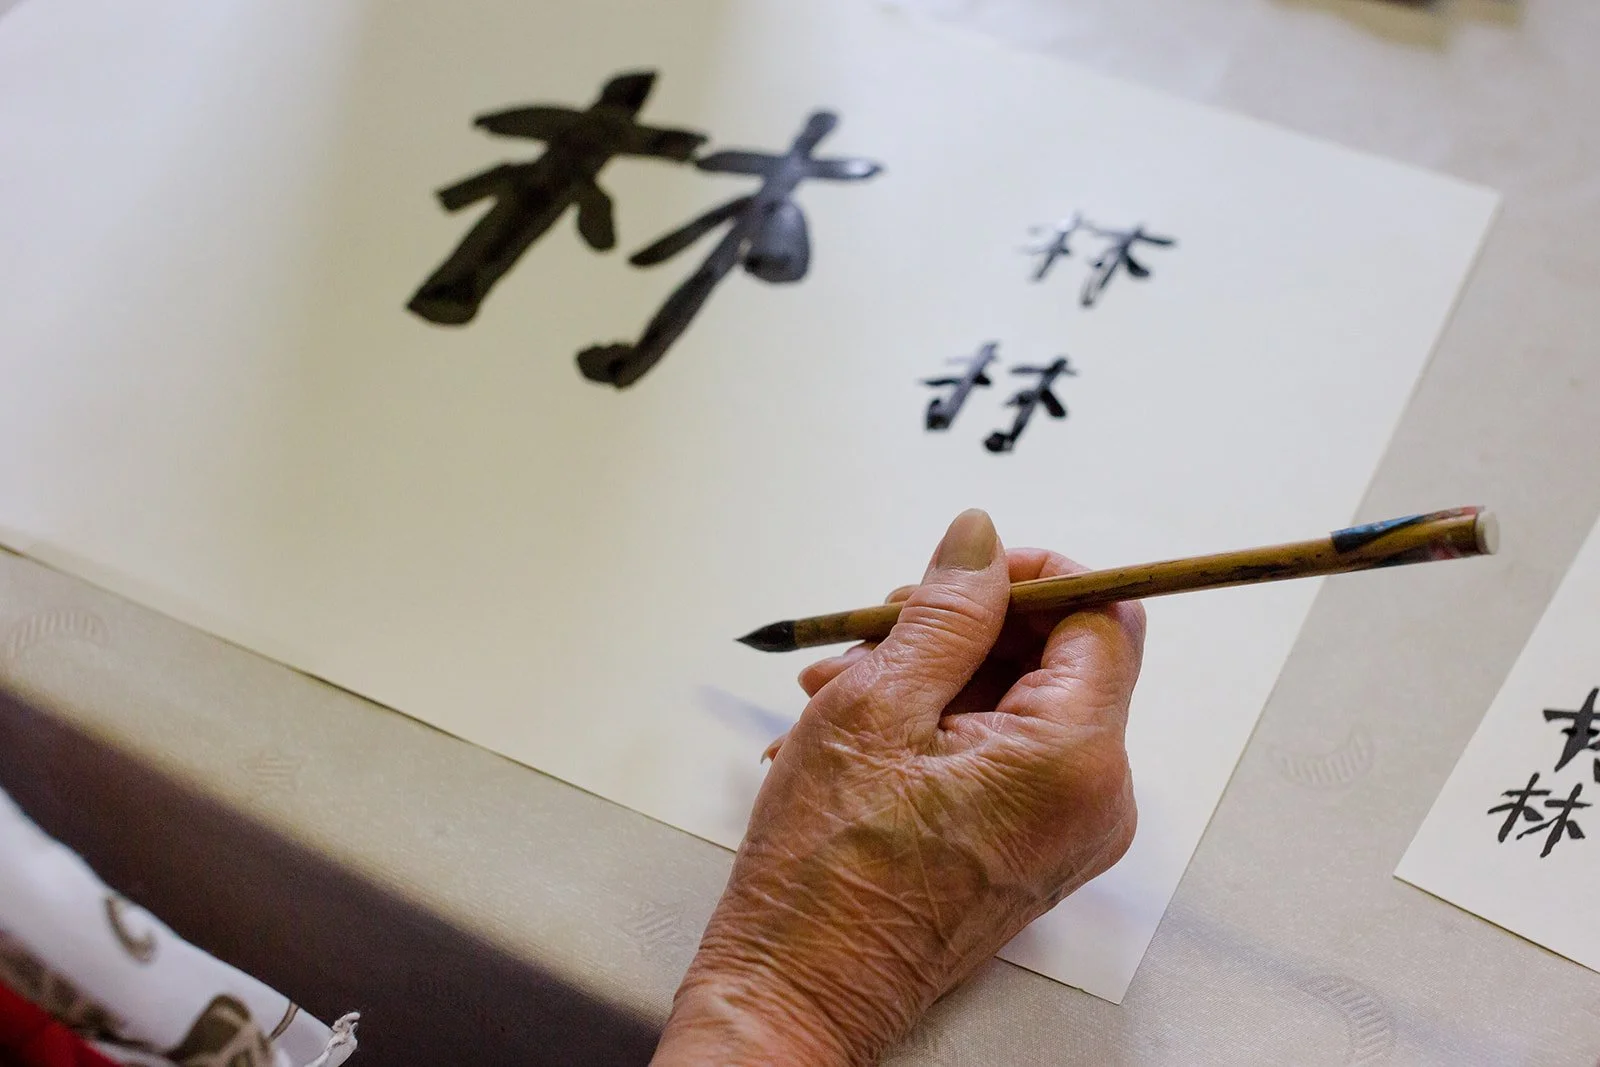 林
林
林
林